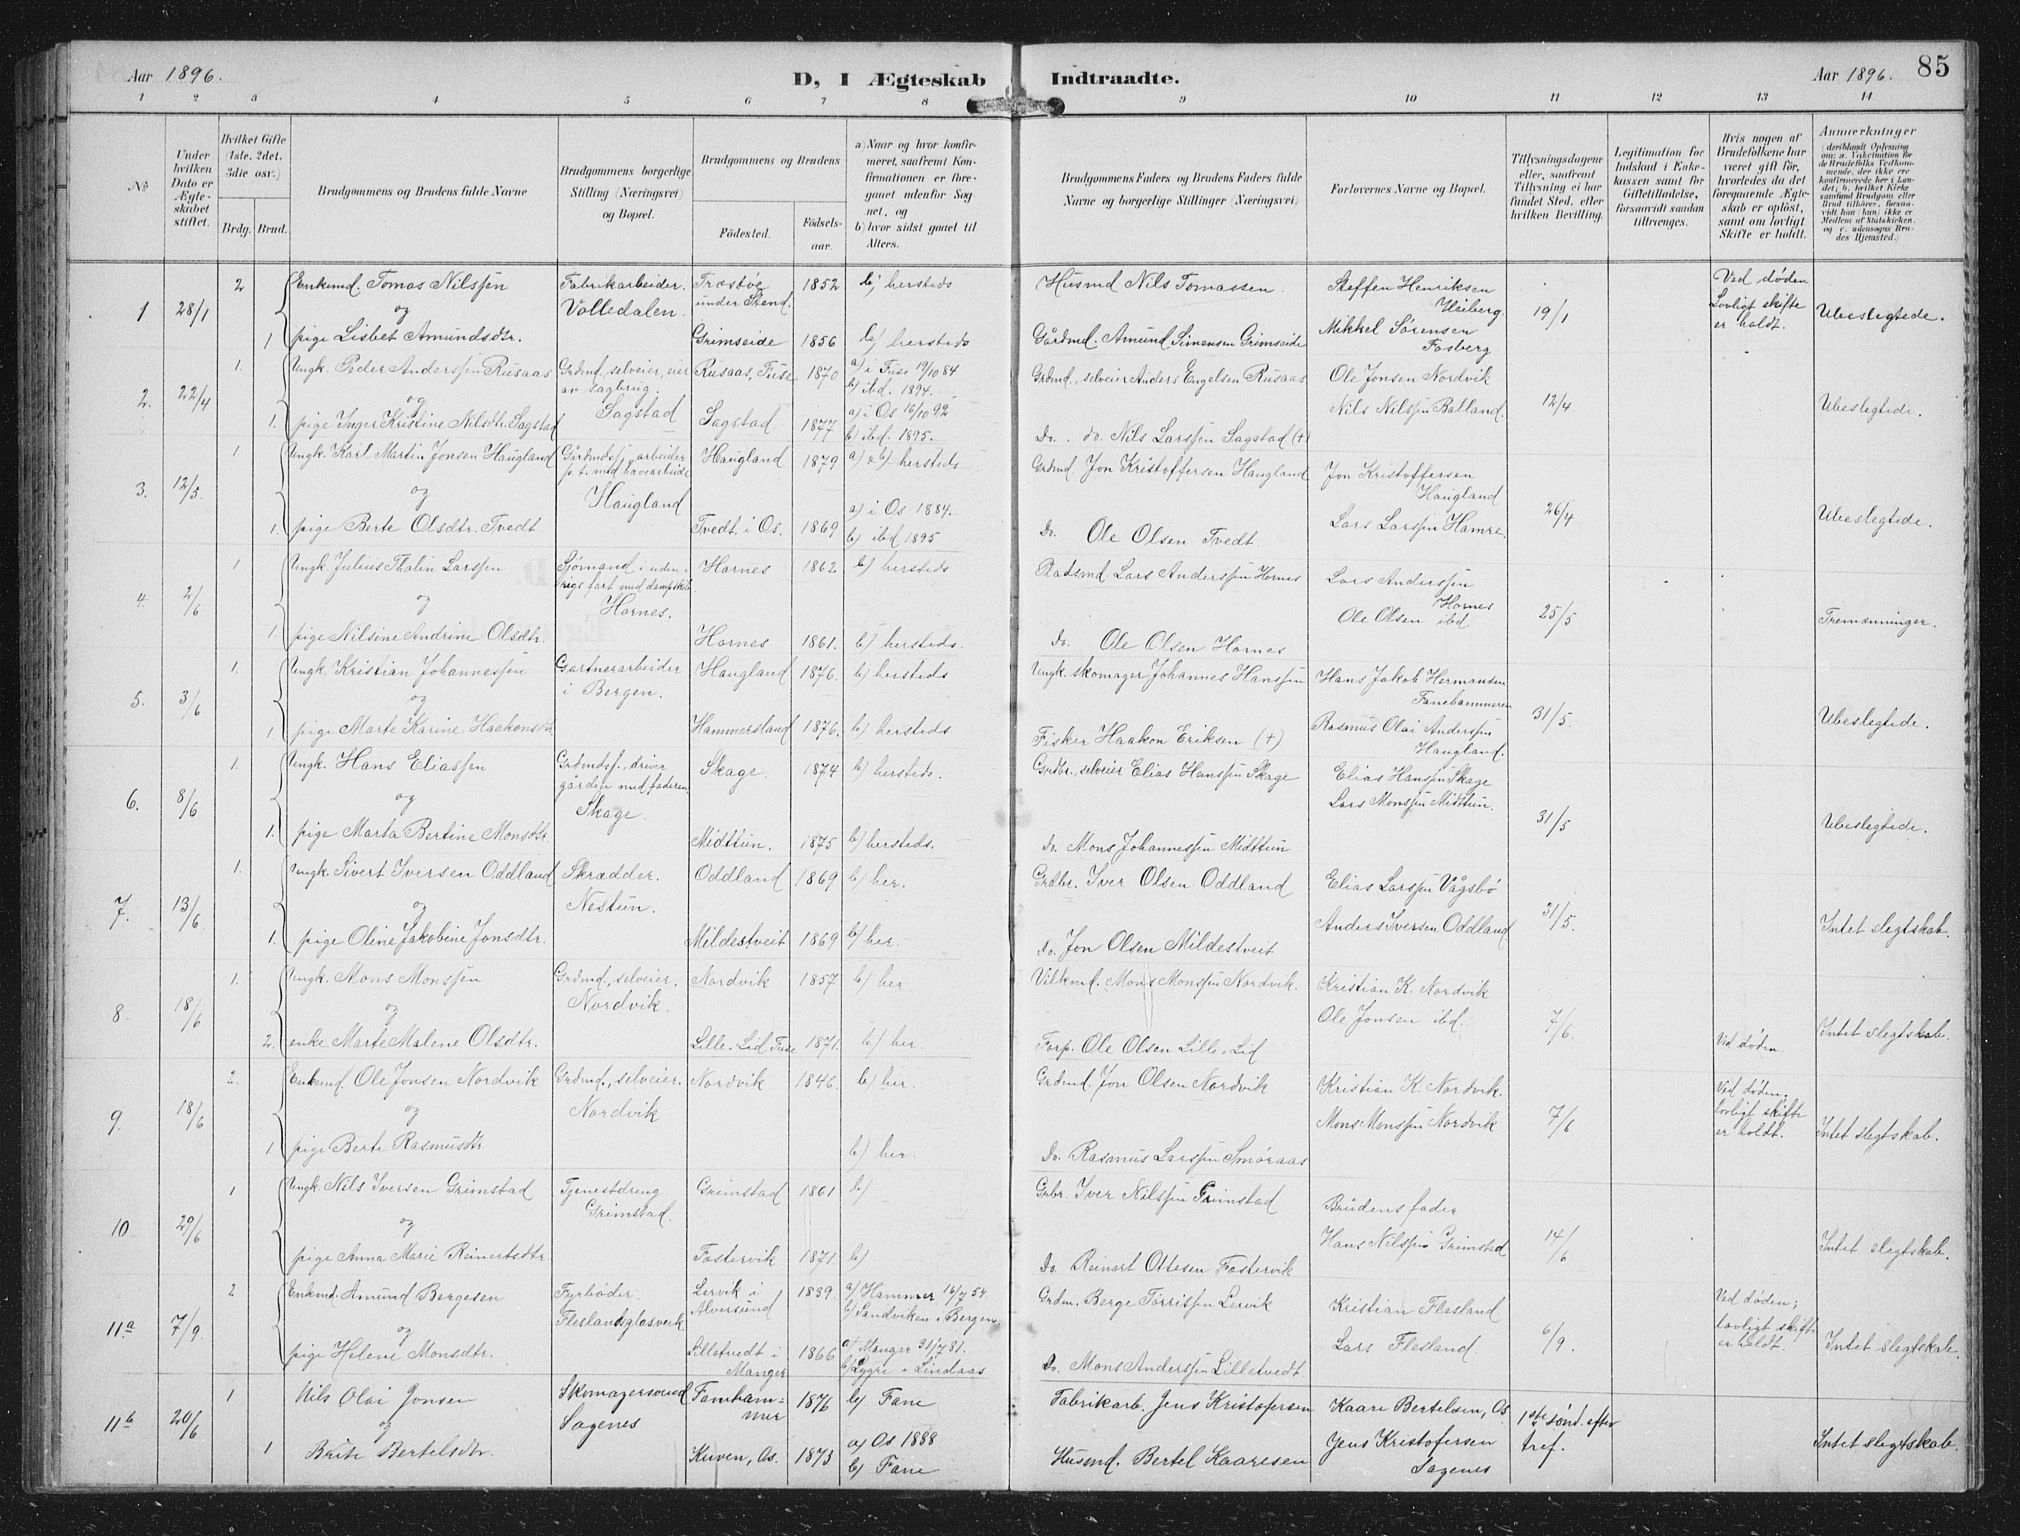 Aar 1896.
D, I Ægteskab Indtraadte.
Aar 1896. 85
1 2 3 4 5 6 7 8 9 10 11 12 13 14
№
Under hvilken Dato er Ægteskabet stiftet.
Hvilket Gifte (1ste, 2det, 3die osv.)
Brdg. Brud.
Brudgommens og Brudens fulde Navne
Brudgommens borgerlige Stilling (Næringsvei) og Bopæl.
Brudgommens og Brudens
Födested.
Födselsaar.
a) Naar og hvor konfirmeret, saafremt Konfirmationen er foregaaet udenfor Sognet, og
b) hvor sidst gaaet til Alters.
Brudgommens Faders og Brudens Faders fulde Navne og borgerlige Stillinger (Næringsvei)
Forlovernes Navne og Bopæl.
Tillysningsdagene eller, saafremt Tillysning ei har fundet Sted, efter hvilken Bevilling.
Legitimation for Indskud i Enkekassen samt for Giftetilladelse, forsaavidt saadan tiltrænges.
Hvis nogen af Brudefolkene har været gift för, hvorledes da det foregaaende Ægteskab er oplöst, samt om lovligt Skifte er holdt.
Anmærkninger (deriblandt Oplysning om: a. Vakcination for de Brudefolks Vedkommende, der ikke ere konfirmerede her i Landet; b. hvilket Kirkesamfund Brudgom eller Brud tilhörer, forsaavidt han (hun) ikke er Medlem af Statskirken, og c. udensogns Brudes Hjemsted.)
1 28/1 2 Enkemd. Tomas Nilssen Fabrikarbeider. Trostöe under Stend. 1852 b) hersteds Husmd Nils Tomassen Steffen Henriksen Heiberg 19/1 Ved døden Lovligt skifte er holdt. Ubeslegtede.
og Volledalen.
1 pige Lisbet Amundsdtr. Grimseide 1856 b) hersteds Gårdmd. Amund Simonsen Grimseide Mikkel Sørensen Fosberg
2. 22/4 1. Ungk. Peder Anderssen Rusaas Grdmd, selveier, eier av sagbrug. Rusaas, Fuse 1870 a) i Fuse 19/10 84 b) ibd. 1894. Grdmd., selveier Anders Engelsen Rusaas Ole Jonsen Nordvik 12/4 Ubeslegtede.
og Sagstad
1. pige Inger Kristine Nilsdtr. Sagstad Sagstad 1877 a) i Os 16/10 92 b) ibd. 1895. Do. do. Nils Larssen Sagstad (+) Nils Nilssen Balland.
3. 12/5. 1 Ungk. Karl Martin Jonsen Haugland Gårdmdssj, arbeider p.t. med havearbeide Haugland 1879 a) & b) hersteds Grdmd. Jon Kristoffersen Haugland Jon Kristoffersen Haugland 26/4 Ubeslegtede.
og Haugland
1. pige Berte Olsdtr. Tvedt Tvedt i Os. 1869 a) i Os 1884. b) ibd 1895 Do. Ole Olsen Tvedt. Lars Larssen Hamre.
4. 2/6 1 Ungk. Julius Thalin Larssen Sjømand i udenrigs fart med dampskib Hornes 1862 b) hersteds Lars Anderssen Hornes Lars Anderssen Hornes 25/5 Tremønninger.
og Hornes.
1. pige Nilsine Andrine Olsdtr. Hornes 1861. b) hersteds. Do. Ole Olsen Hornes Ole Olsen ibd.
5. 3/6 1. Ungk. Kristian Johannessen Gartnerarbeider i Bergen. Haugland 1876. b) hersteds Ungk. skomager Johannes Hanssen Hans Jakob Hermansen Fanehammeren 31/5. Ubeslegtede.
og
1 pige Marte Karine Haakonsdtr. Hammersland 1876. b) hersteds Fisker Haakon Eriksen (+) Rasmus Olai Anderssen Haugland.
6. 8/6 1. Ungk. Hans Eliassen Grdmdss., driver gården med faderen Skage. 1874 b) hersteds. Grdbr., selveier Elias Hanssen Skage Elias Hanssen Skage 31/5 Ubeslegtede.
og Skage.
1. pige Marta Bertine Monsdtr. Midttun. 1875 b) hersteds. Do. Mons Johannessen Midttun Lars Monssen Midttun.
7. 13/6 1. Ungk. Sivert Iversen Oddland Skrædder. Oddland 1869 b) her. Grdbr. Iver Olsen Oddland Elias Larssen Vågsbø 31/5. Intet slegtskab.
og Nestun.
1. pige Oline Jakobine Jonsdtr. Mildestveit 1869 b) her. Do. Jon Olsen Mildestveit Anders Iversen Oddland
8. 18/6 1. Ungk. Mons Monssen Grdmd., selveier. Nordvik 1857 b) her. Vilkmd. Mons Monssen Nordvik. Kristian K. Nordvik 7/6. Intet slegtskab.
og Nordvik.
2. enke Marte Malene Olsdtr. Lille-Lid, Fuse 1871. b) her. Forp. Ole Olsen Lille-Lid Ole Jonsen ibd. Ved døden
9. 18/6 2. Enkemd. Ole Jonsen Nordvik Grdmd., selveier. Nordvik 1846. b) her. Grdmd. Jon Olsen Nordvik Kristian K. Nordvik. 7/6 Ved døden. lovligt skifte er holdt. Intet slegtskab.
og Nordvik
1 pige Berte Rasmusdtr. b) her. Do. Rasmus Larssen Smøraas Mons Monssen Nordvik
10 29/6 1 Ungk. Nils Iversen Grimstad Tjenestdreng Grimstad. Grimstad 1861 b) Grbr. Iver Nilssen Grimstad Brudens fader 14/6 Intet slegtskab.
og
pige Anna Marie Reinertsdtr. Fostervik 1871. b) Do. Reinert Ottesen Fostervik Hans Nilssen Grimstad
11a 7/9. 2 Enkmd. Amund Bergesen Fyrbøder. Lervik i Alversund 1839. a) Hammer 16/7 54. b) Sandviken i Bergen Grdm. Berge Torrissen Lervik Kristian Flesland 6/9. Ved døden; lovligt skifte er holdt. Intet slegtskab.
og Fleslandsglasverk
pige Helene Monsdtr. Lilletvedt i Manger 1866 a) Manger 31/7 81. b) Lygre i Lindaas Do. Mons Anderssen Lilletvedt. Lars Flesland
11b 20/6 1 Nils Olai Jonsen Skomagersvend Fanehammer 1876 b) Fane Fabrikarb. Jens Kristofersen Kaare Bertelsen, Os. 1ste sønd. efter tref. Intet slegtskab.
og Sagenes
1 Brite Bertelsdtr Kuven, Os. 1873 a) Os 1888 b) Fane Husmd. Bertel Kaaresen Jens Kristofersen Sagenes